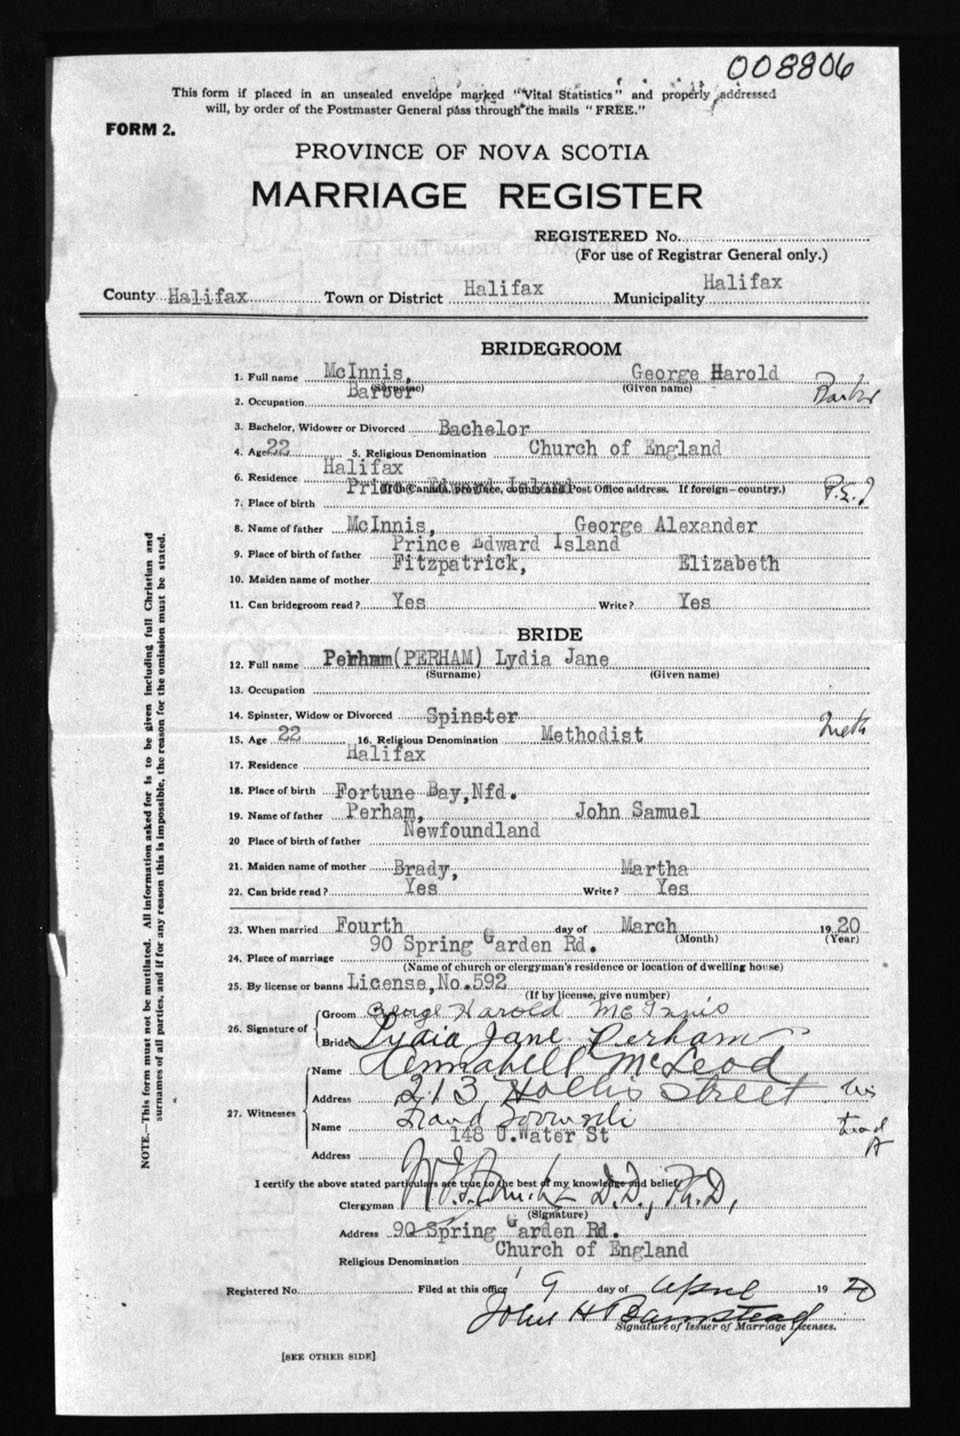 008806
This form if placed in an unsealed envelope marked "Vital Statistics" and properly addressed
will, by order of the Postmaster General pass through the mails "FREE."
FORM 2.
PROVINCE OF NOVA SCOTIA
MARRIAGE REGISTER
REGISTERED No.
(For use of Registrar General only.)
County Halifax Town or District Halifax Municipality Halifax
BRIDEGROOM
1. Full name McInnis, George Harold
(Surname) (Given name)
2. Occupation Barber Barber
3. Bachelor, Widower or Divorced Bachelor
4. Age 22 5. Religious Denomination Church of England
6. Residence Halifax
(If in Canada, province, county and Post Office address. If foreign—country.)
7. Place of birth Prince Edward Island P.E.I
8. Name of father McInnis, George Alexander
9. Place of birth of father Prince Edward Island
10. Maiden name of mother Fitzpatrick, Elizabeth
11. Can bridegroom read? Yes Write? Yes
BRIDE
12. Full name Perham (PERHAM) Lydia Jane
(Surname) (Given name)
13. Occupation
14. Spinster, Widow or Divorced Spinster
15. Age 22 16. Religious Denomination Methodist Meth
17. Residence Halifax
18. Place of birth Fortune Bay, Nfd.
19. Name of father Perham, John Samuel
20 Place of birth of father Newfoundland
21. Maiden name of mother Brady, Martha
22. Can bride read? Yes Write? Yes
23. When married Fourth day of March 1920
(Month) (Year)
24. Place of marriage 90 Spring Garden Rd.
(Name of church or clergyman's residence or location of dwelling house)
25. By license or banns License, No. 592
(If by license, give number)
26. Signature of Groom George Harold McInnis
Bride Lydia Jane Perham
27. Witnesses Name Annabell McLeod
Address 213 Hollis Street
Name
Address 148 U. Water St
I certify the above stated particulars are true to the best of my knowledge and belief
Clergyman D.D., Ph.D,
(Signature)
Address 90 Spring Garden Rd.
Religious Denomination Church of England
Registered No. Filed at this office 9 day of April 1920
John H Barnstead
Signature of Issuer of Marriage Licenses.
[SEE OTHER SIDE]
NOTE.—This form must not be mutilated. All information asked for is to be given including full Christian and
surnames of all parties, and if for any reason this is impossible, the reason for the omission must be stated.